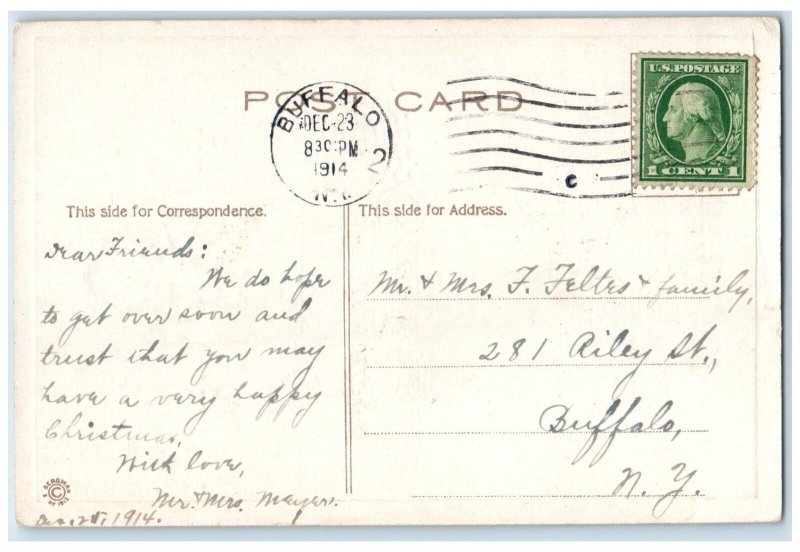 POST CARD
BUFFALO
DEC-23
830PM
1914
N.Y.
2
C
U.S. POSTAGE
1 CENT 1
This side for Correspondence.
Dear Friends:
We do hope
to get over soon and
trust that you may
have a very happy
Christmas.
With love,
Mr. & Mrs. Meyer.
1914.
This side for Address.
Mr. & Mrs. F. Feltes & family,
281 Riley St.,
Buffalo,
N. Y.